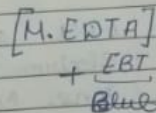 [M. EDTA]
+ EBT
Blue